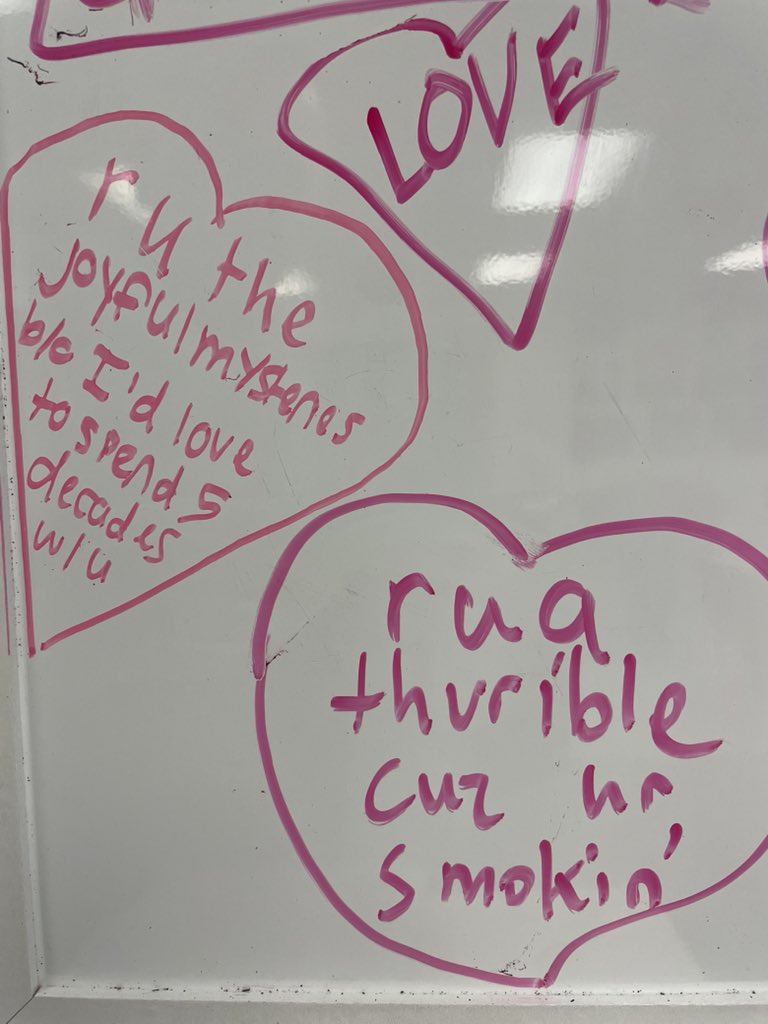 LOVE
r u the
joyful mysteries
b/c I'd love
to spend 5
decades
w/u
r u a
thurible
cuz ur
smokin'